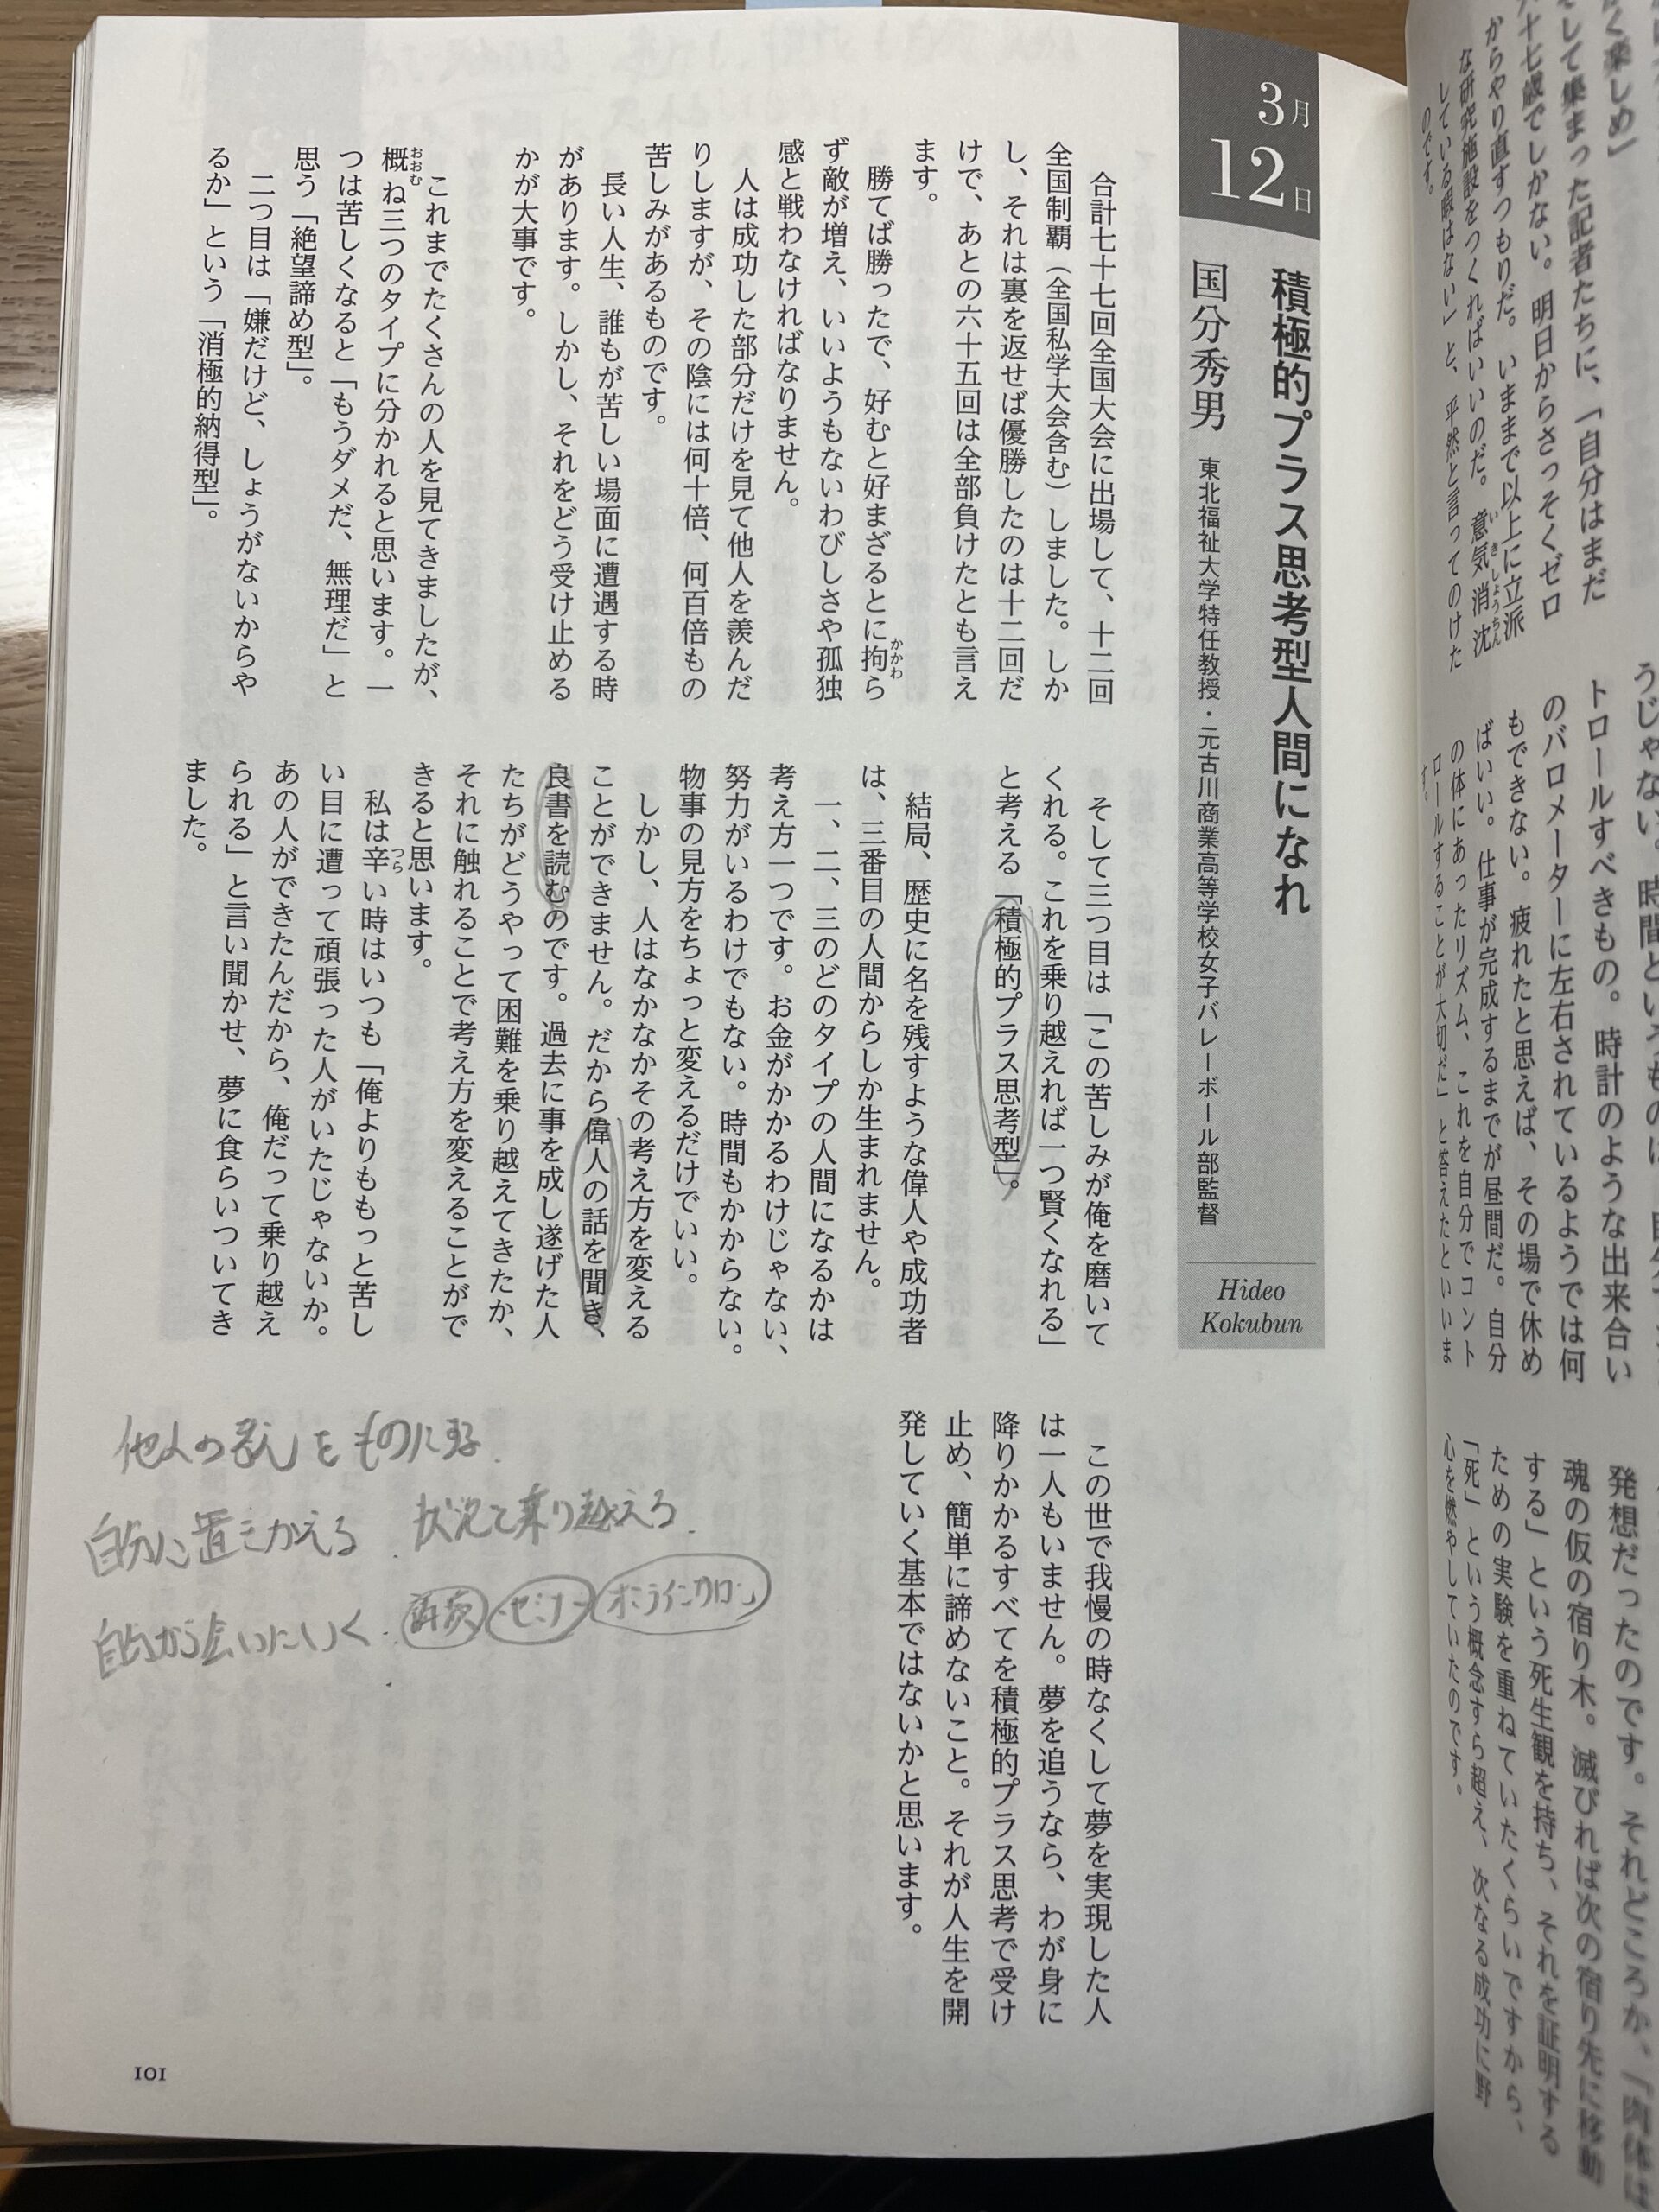 3月
12日
積極的プラス思考型人間になれ
国分秀男 東北福祉大学特任教授・元古川商業高等学校女子バレーボール部監督
Hideo
Kokubun
合計七十七回全国大会に出場して、十二回
全国制覇（全国私学大会含む）しました。しか
し、それは裏を返せば優勝したのは十二回だ
けで、あとの六十五回は全部負けたとも言え
ます。
勝てば勝ったで、好むと好まざるとに拘ら
ず敵が増え、いいようもないわびしさや孤独
感と戦わなければなりません。
人は成功した部分だけを見て他人を羨んだ
りしますが、その陰には何十倍、何百倍もの
苦しみがあるものです。
長い人生、誰もが苦しい場面に遭遇する時
があります。しかし、それをどう受け止める
かが大事です。
これまでたくさんの人を見てきましたが、
概ね三つのタイプに分かれると思います。一
つは苦しくなると「もうダメだ、無理だ」と
思う「絶望諦め型」。
二つ目は「嫌だけど、しょうがないからや
るか」という「消極的納得型」。
そして三つ目は「この苦しみが俺を磨いて
くれる。これを乗り越えれば一つ賢くなれる」
と考える「積極的プラス思考型」。
結局、歴史に名を残すような偉人や成功者
は、三番目の人間からしか生まれません。
一、二、三のどのタイプの人間になるかは
考え方一つです。お金がかかるわけじゃない、
努力がいるわけでもない。時間もかからない。
物事の見方をちょっと変えるだけでいい。
しかし、人はなかなかその考え方を変える
ことができません。だから偉人の話を聞き、
良書を読むのです。過去に事を成し遂げた人
たちがどうやって困難を乗り越えてきたか、
それに触れることで考え方を変えることがで
きると思います。
私は辛い時はいつも「俺よりももっと苦し
い目に遭って頑張った人がいたじゃないか。
あの人ができたんだから、俺だって乗り越え
られる」と言い聞かせ、夢に食らいついてき
ました。
この世で我慢の時なくして夢を実現した人
は一人もいません。夢を追うなら、わが身に
降りかかるすべてを積極的プラス思考で受け
止め、簡単に諦めないこと。それが人生を開
発していく基本ではないかと思います。
他人の をものにする
自分に置きかえる 状況で乗り越える
自分から会いにいく 講演 セミナー オンラインサロン
101
く楽しめ」
して集まった記者たちに、「自分はまだ
十七歳でしかない。明日からさっそくゼロ
からやり直すつもりだ。いままで以上に立派
な研究施設をつくればいいのだ。意気消沈
している暇はない」と、平然と言ってのけた
のです。
トロールすべきもの。時計のような出来合い
のバロメーターに左右されているようでは何
もできない。疲れたと思えば、その場で休め
ばいい。仕事が完成するまでが昼間だ。自分
の体にあったリズム、これを自分でコント
ロールすることが大切だ」と答えたといいま
す。
発想だったのです。それどころか、「肉体は
魂の仮の宿り木。滅びれば次の宿り先に移動
する」という死生観を持ち、それを証明する
ための実験を重ねていたくらいですから、
「死」という概念すら超え、次なる成功に野
心を燃やしていたのです。